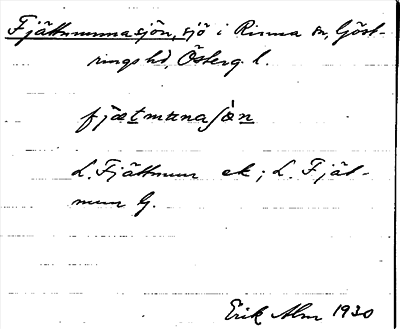 Fjättmunnasjön, sjö i Rinna sn, Göst-
rings hd, Österg. l.
fjætmunaſὼn
L. Fjättmun ek; L. Fjät-
mun G.
Erik Alm 1930